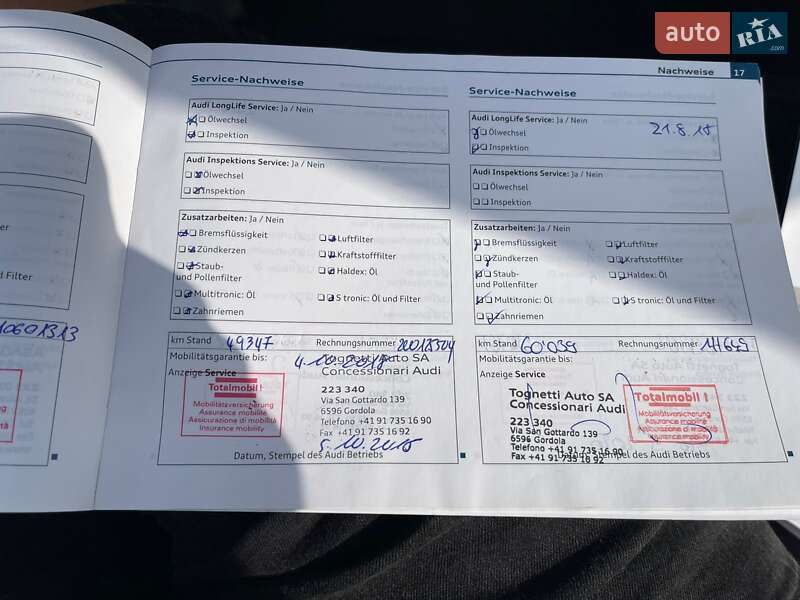 auto RIA .com
Nachweise 17
er
nd Filter
10601313
Service-Nachweise
Audi LongLife Service: Ja / Nein
Ölwechsel
Inspektion
Audi Inspektions Service: Ja / Nein
Ölwechsel
Inspektion
Zusatzarbeiten: Ja / Nein
Bremsflüssigkeit
Luftfilter
Zündkerzen
Kraftstofffilter
Staub-
und Pollenfilter
Haldex: Öl
Multitronic: Öl
S tronic: Öl und Filter
Zahnriemen
km Stand 49347 Rechnungsnummer
Mobilitätsgarantie bis:
Anzeige Service
Totalmobil!
Mobilitätsversicherung
Assurance mobilité
Assicurazione di mobilità
Insurance mobility
Tognetti Auto SA
Concessionari Audi
223 340
Via San Gottardo 139
6596 Gordola
Telefono +41 91 735 16 90
Fax +41 91 735 16 92
5.10.2015
Datum, Stempel des Audi Betriebs
Service-Nachweise
Audi LongLife Service: Ja / Nein
Ölwechsel
Inspektion
Audi Inspektions Service: Ja / Nein
Ölwechsel
Inspektion
Zusatzarbeiten: Ja / Nein
Bremsflüssigkeit
Luftfilter
Zündkerzen
Kraftstofffilter
Staub-
und Pollenfilter
Haldex: Öl
Multitronic: Öl
S tronic: Öl und Filter
Zahnriemen
km Stand 60'039 Rechnungsnummer
Mobilitätsgarantie bis:
Anzeige Service
Tognetti Auto SA
Concessionari Audi
223 340
Via San Gottardo 139
6596 Gordola
Telefono +41 91 735 16 90
Fax +41 91 735 16 92
Totalmobil!
Mobilitätsversicherung
Assurance mobilité
Assicurazione di mobilità
Insurance mobility
Datum, Stempel des Audi Betriebs